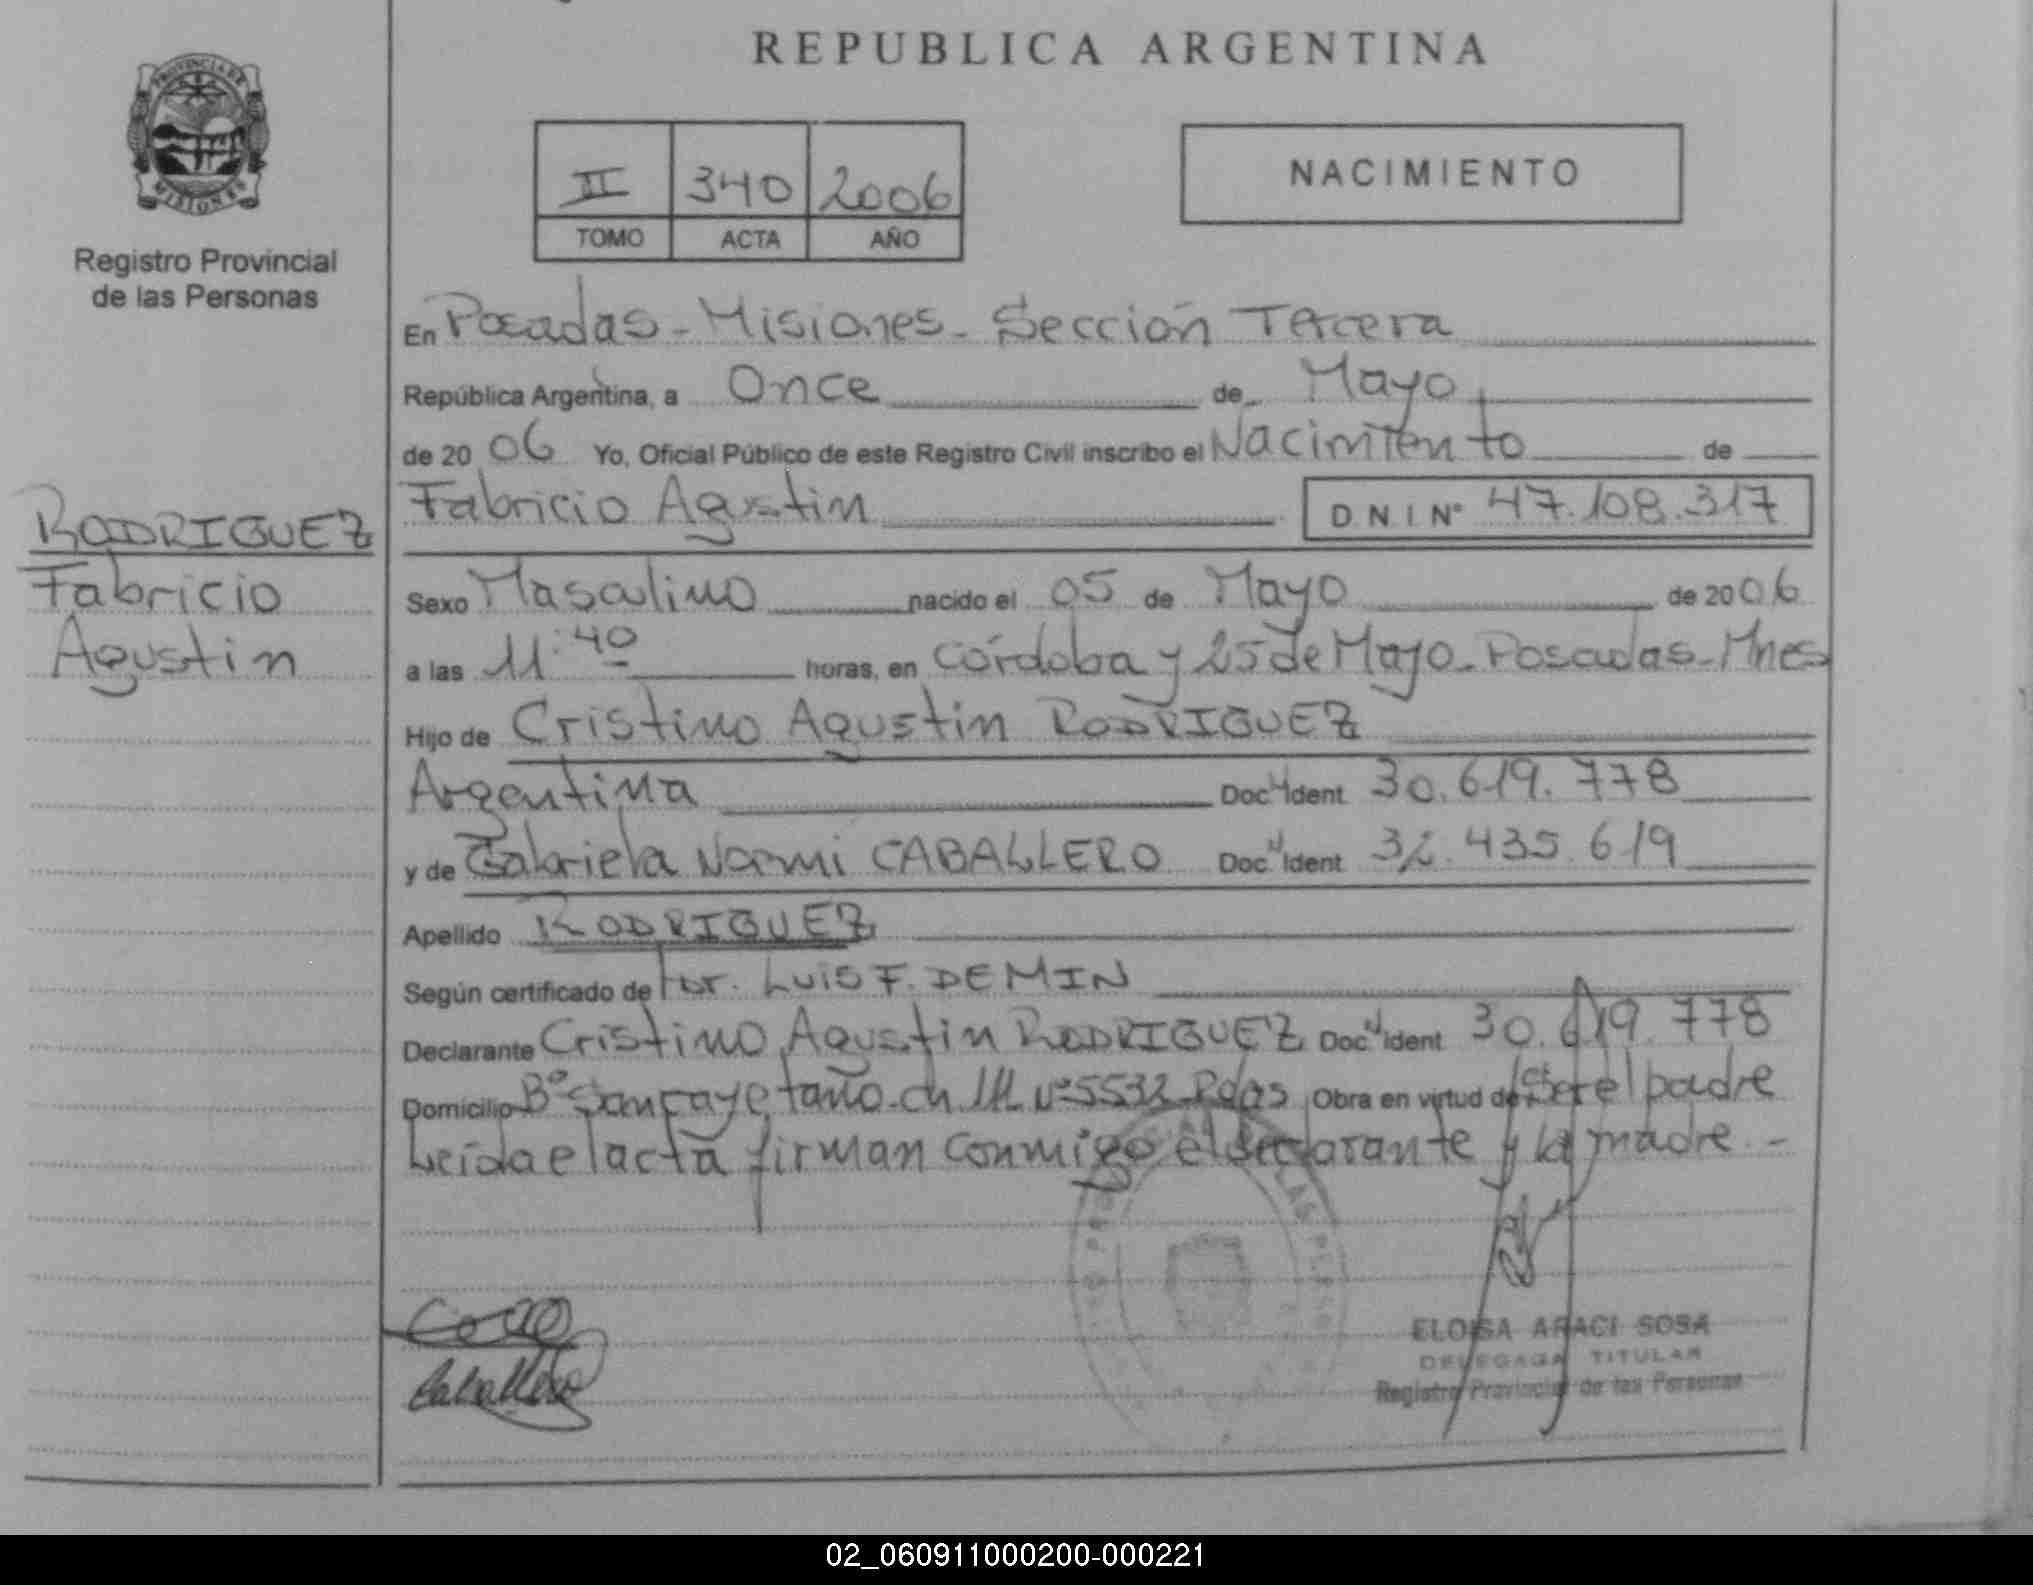 REPUBLICA ARGENTINA
PROVINCIA DE
MISIONES
Registro Provincial
de las Personas
II 340 2006
TOMO ACTA AÑO
NACIMIENTO
En Posadas - Misiones - Sección Tercera
República Argentina, a Once de Mayo
de 2006 Yo, Oficial Público de este Registro Civil inscribo el Nacimiento de
Fabricio Agustin D N I Nº 47.108.317
RODRIGUEZ
Fabricio
Agustin
Sexo Masculino nacido el 05 de Mayo de 2006
a las 11:40 horas, en Córdoba y 25 de Mayo - Posadas - Mnes
Hijo de Cristino Agustin RODRIGUEZ
Argentina Doc. Ident 30.619.778
y de Gabriela Noemi CABALLERO Doc. Ident 32.435.619
Apellido RODRIGUEZ
Según certificado de Dr. LUIS F. DEMIN
Declarante Cristino Agustin RODRIGUEZ Doc. Ident 30.619.778
Domicilio Bº San Cayetano - ch Nº 5532 - Pdas Obra en virtud de Ser el padre
Leida el acta firman conmigo el declarante y la madre. -
Caballero
ELOISA ARACI SOSA
DELEGADA TITULAR
Registro Provincial de las Personas
02_060911000200-000221